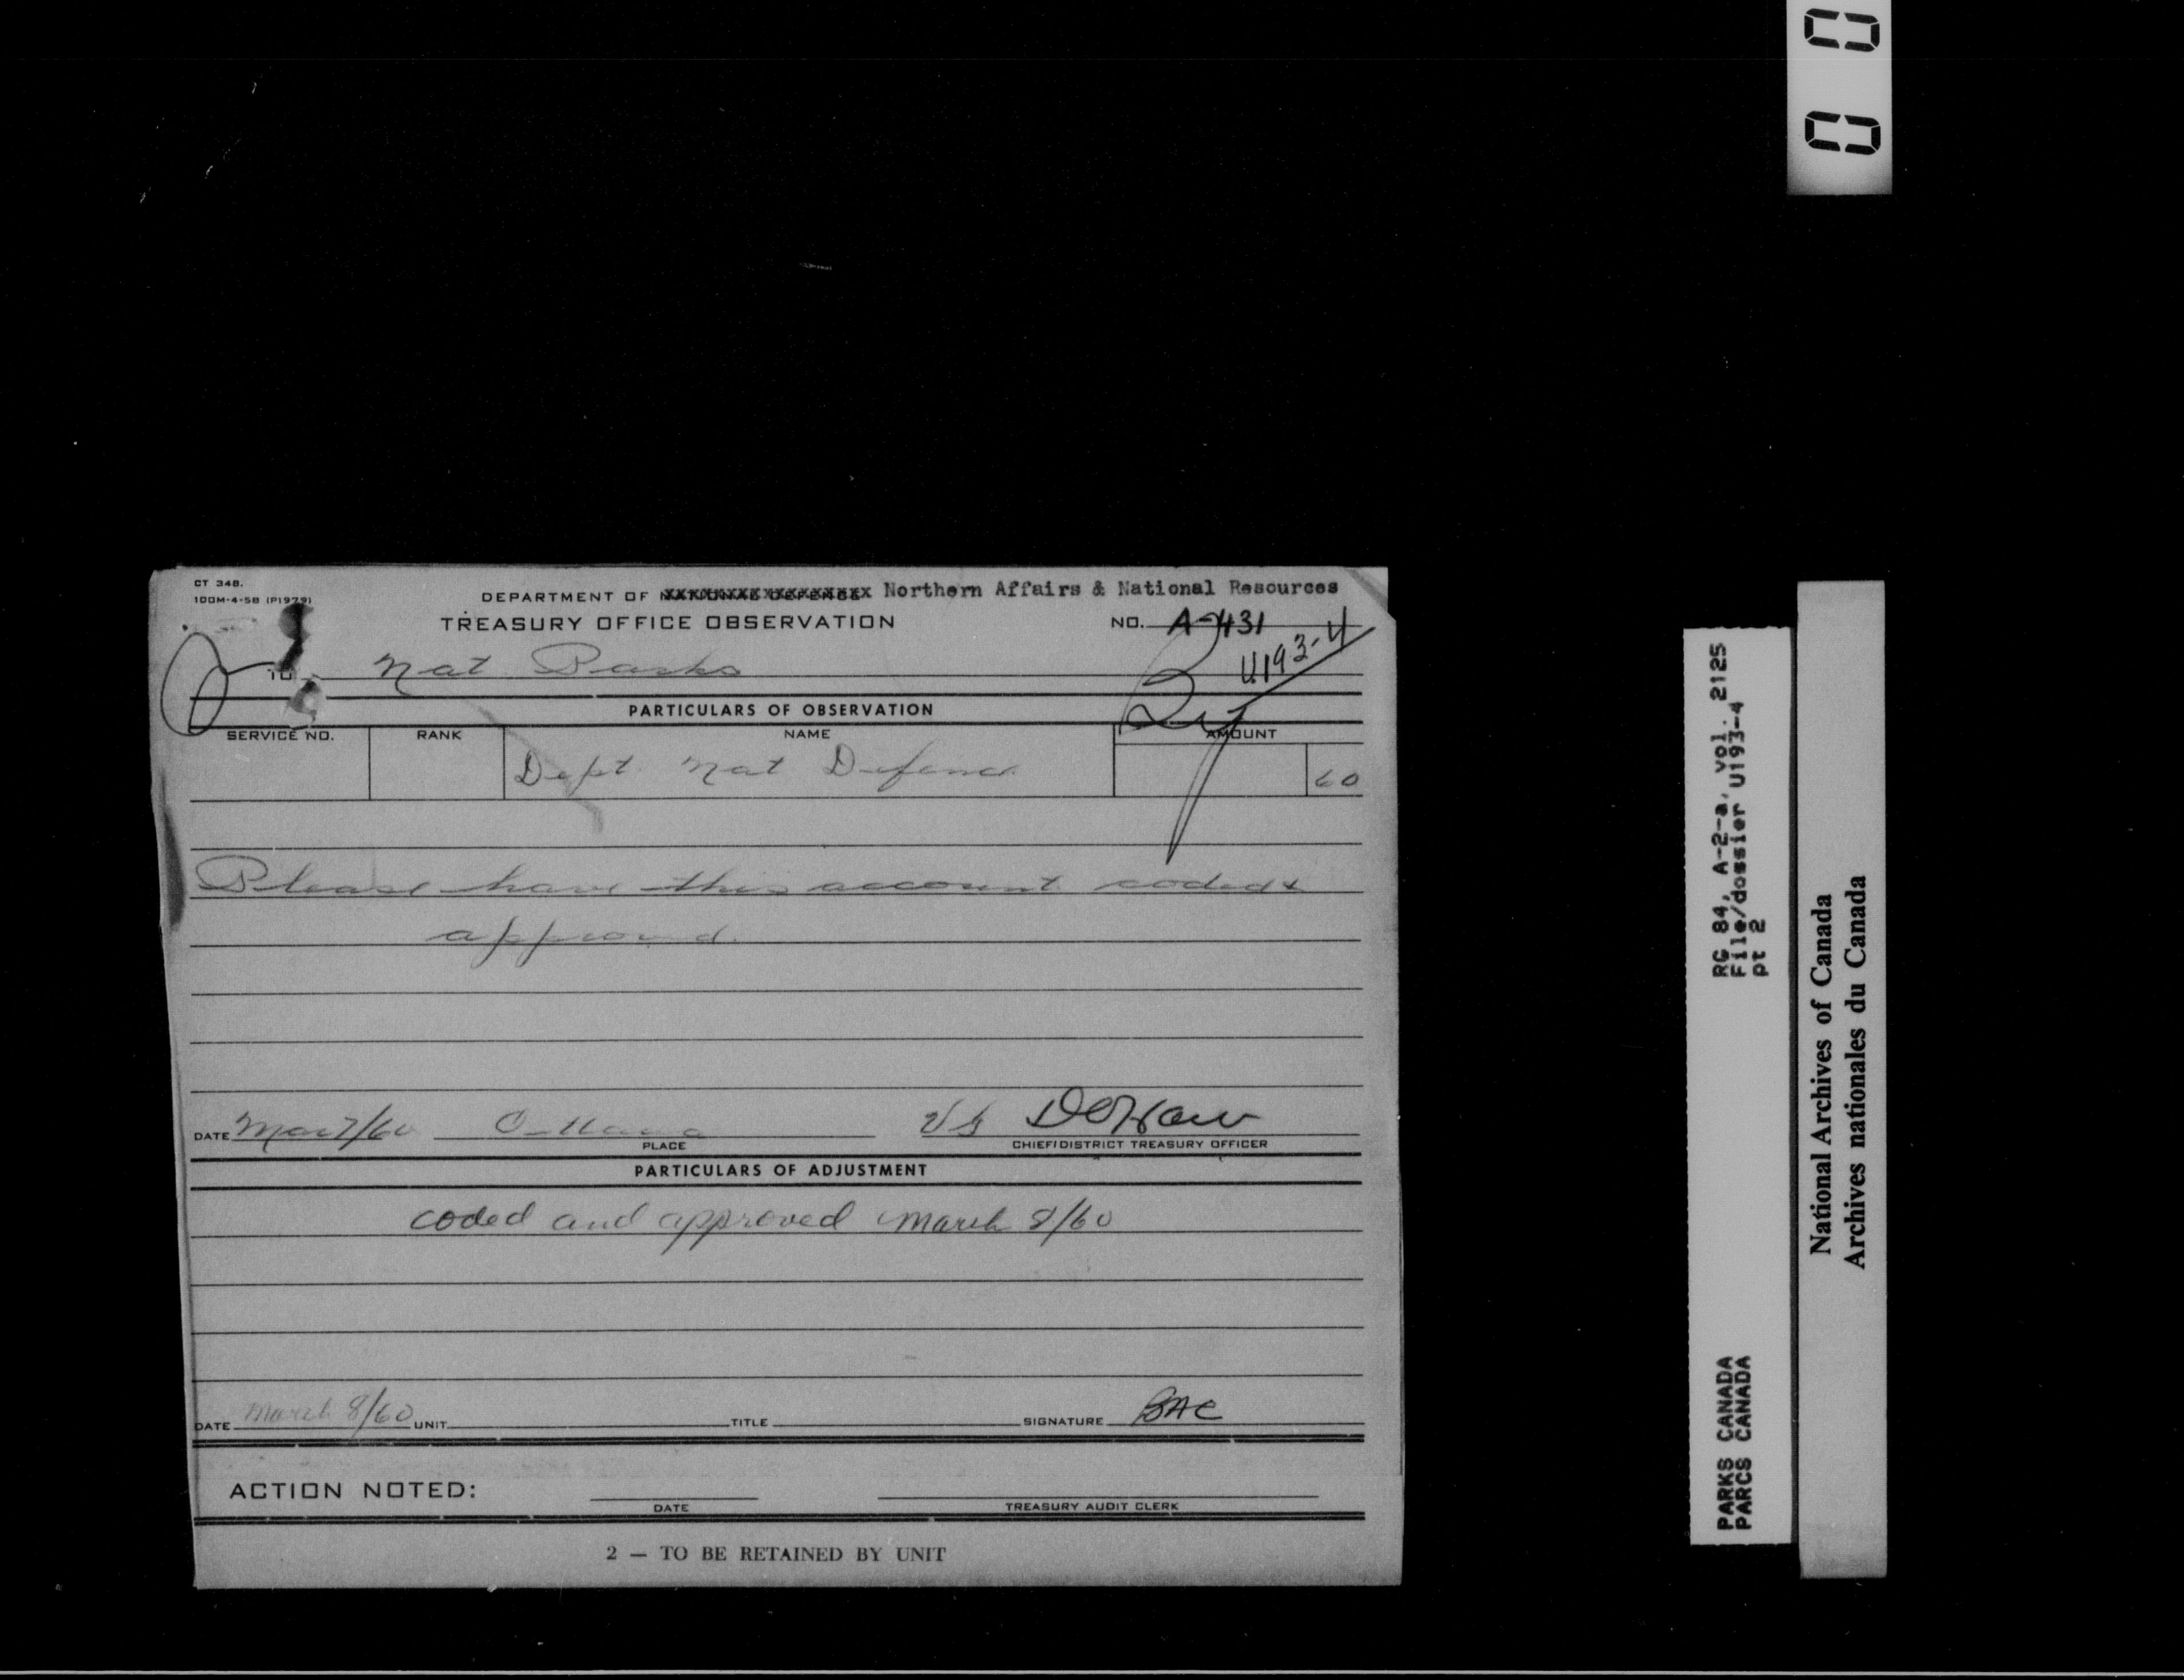 CT 348.
100M-4-58 (P1979)
DEPARTMENT OF NATIONAL DEFENCE Northern Affairs & National Resources
TREASURY OFFICE OBSERVATION
NO. A-431
U193-4
TO Nat Parks
PARTICULARS OF OBSERVATION
SERVICE NO. RANK NAME AMOUNT
Dept Nat Defence 60
Please have this account coded &
approved.
DATE Mar 7/60 Ottawa
PLACE
CHIEF/DISTRICT TREASURY OFFICER
PARTICULARS OF ADJUSTMENT
coded and approved March 8/60
DATE March 8/60 UNIT TITLE SIGNATURE BAC
ACTION NOTED:
DATE
TREASURY AUDIT CLERK
2 — TO BE RETAINED BY UNIT
RG 84, A-2-a, vol. 2125
File/dossier U193-4
pt 2
PARKS CANADA
PARCS CANADA
National Archives of Canada
Archives nationales du Canada
00